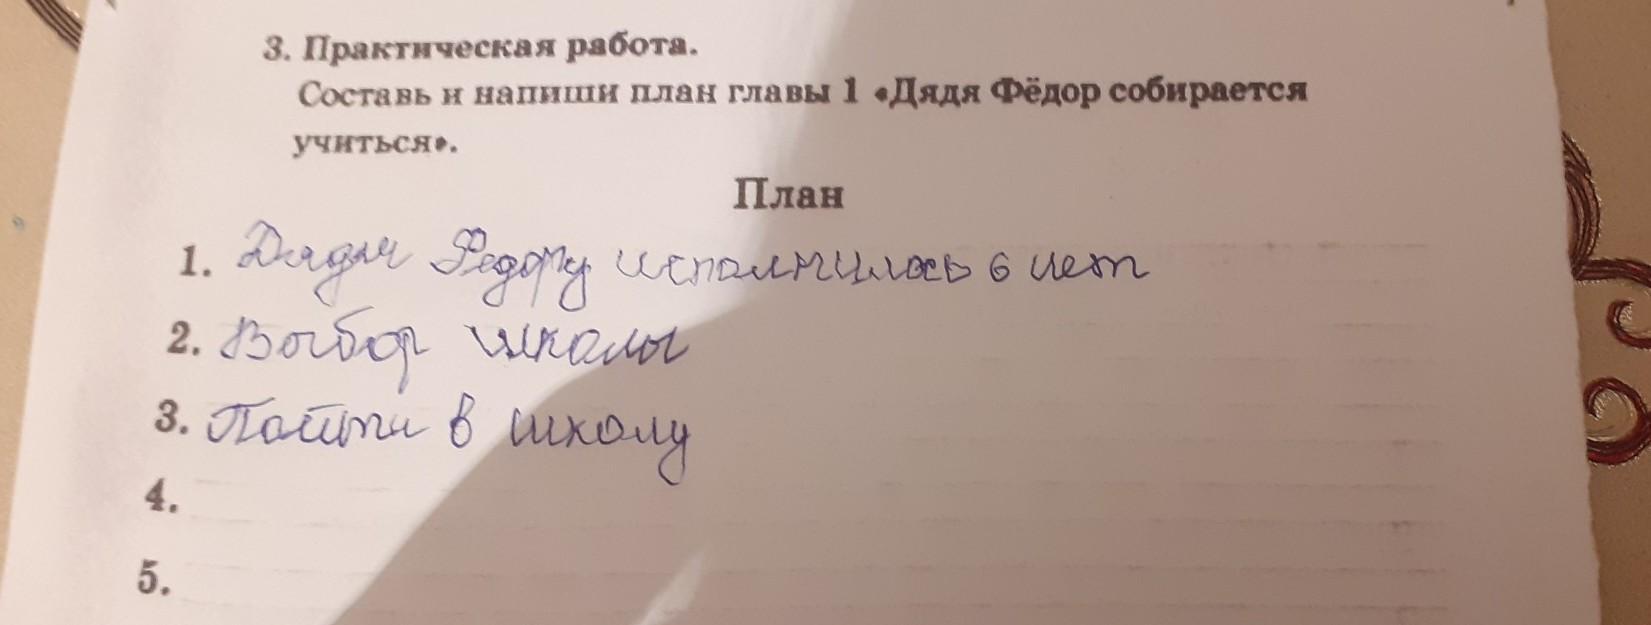 3. Практическая работа.
Составь и напиши план главы 1 «Дядя Фёдор собирается
учиться».
План
1. Дядя Федору исполнилось 6 лет
2. Выбор школы
3. Пойти в школу
4.
5.